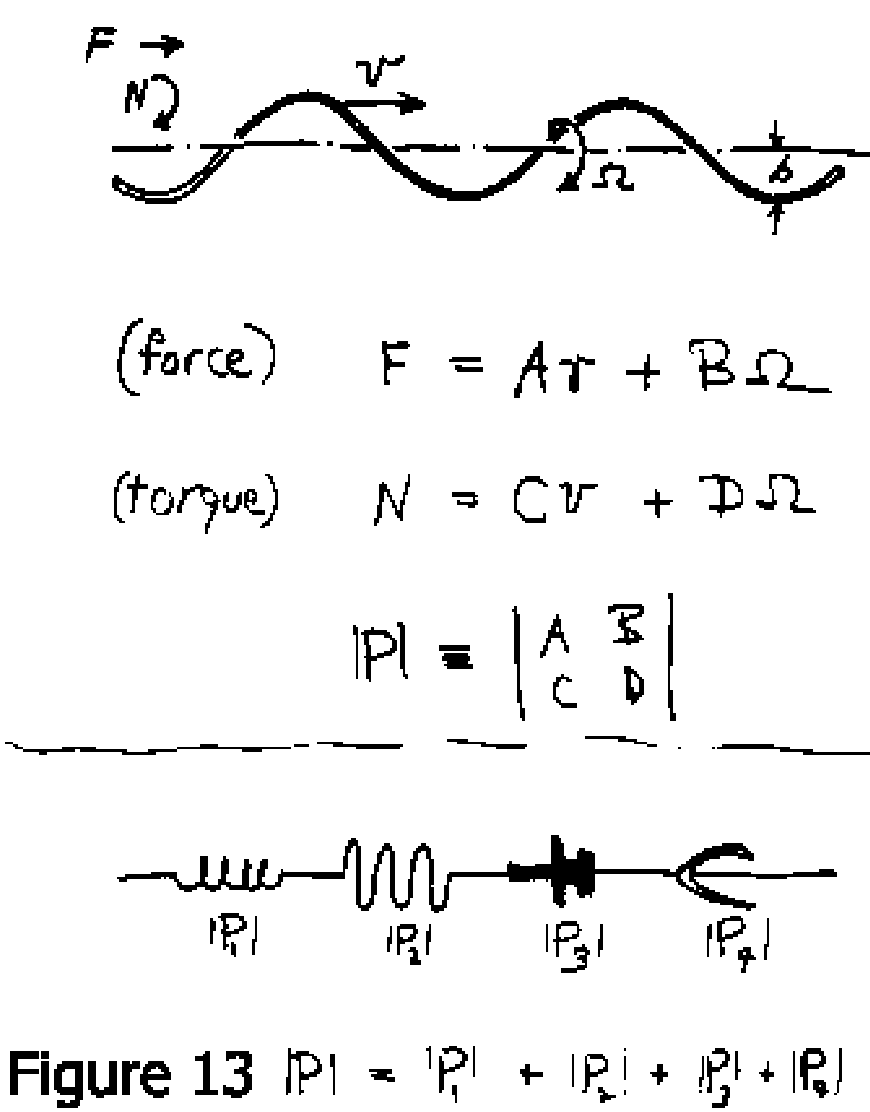 F →
N v
b
Ω
(force) F = Av + BΩ
(torque) N = Cv + DΩ
|P| ≡ | A B |
| C D |
|P₁| |P₂| |P₃| |P₄|
Figure 13 |P| = |P₁| + |P₂| + |P₃| + |P₄|